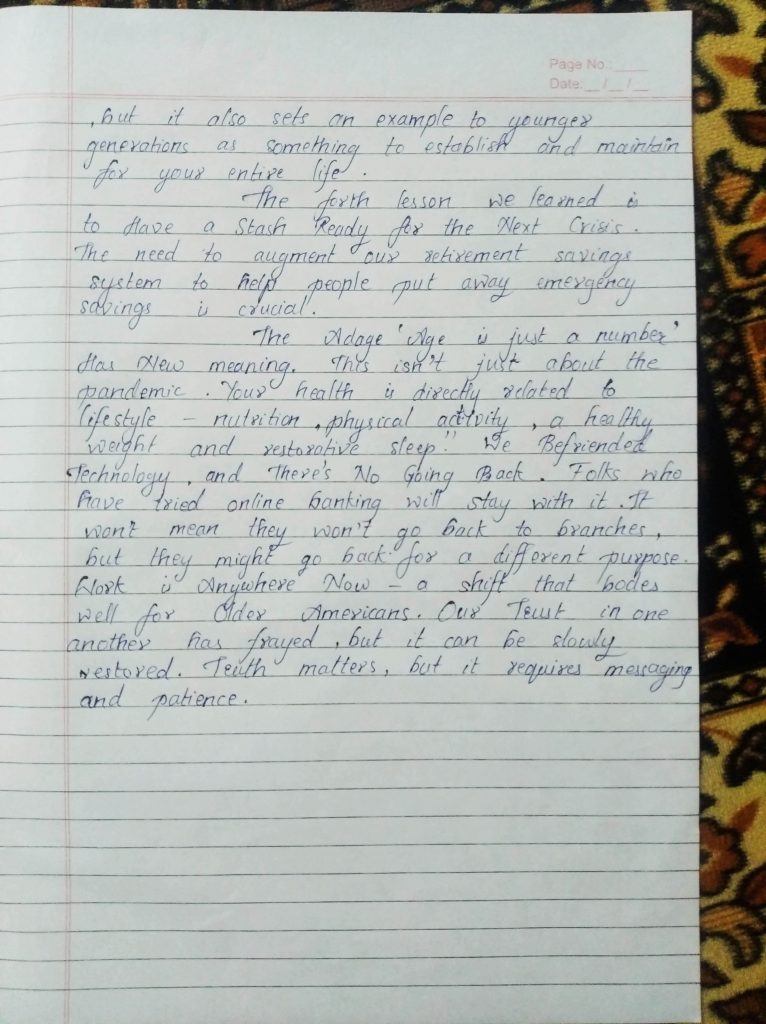 Page No.:
Date: / /
, but it also sets an example to younger
generations as something to establish and maintain
for your entire life .
The forth lesson we learned is
to Have a Stash Ready for the Next Crisis .
The need to augment our retirement savings
system to help people put away emergency
savings is crucial .
The Adage 'Age is just a number'
Has New meaning. This isn't just about the
pandemic . Your health is directly related to
lifestyle – nutrition , physical activity , a healthy
weight and restorative sleep." We Befriended
Technology , and There's No Going Back . Folks who
have tried online banking will stay with it . It
won't mean they won't go back to branches ,
but they might go back for a different purpose .
Work is Anywhere Now – a shift that bodes
well for Older Americans . Our Trust in one
another has frayed , but it can be slowly
restored . Truth matters , but it requires messaging
and patience .